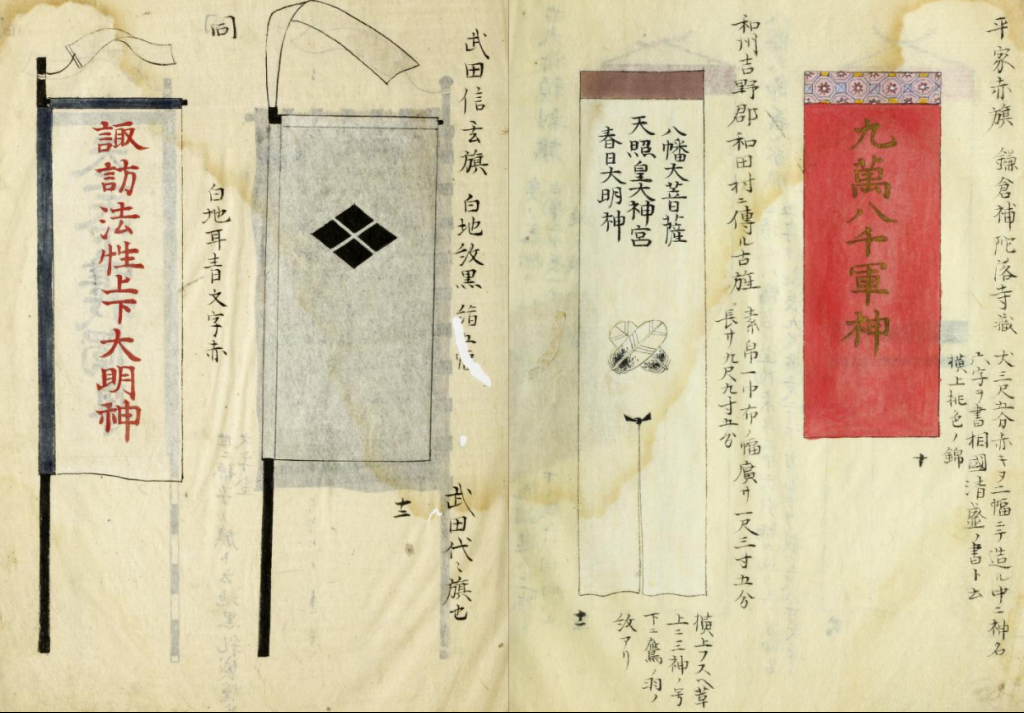 平家赤旗 鎌倉補陀落寺蔵
大三尺五分赤キヲ二幅ニテ造ル中ニ神名
六字ヲ書相國清盛ノ書ト云
横上桃色ノ錦
九萬八千軍神
十
和州吉野郡和田村ニ傳ル古旌
素帛一巾布ノ幅廣サ一尺三寸五分
長サ九尺九寸五分
八幡大菩薩
天照皇大神宮
春日大明神
横上フスヘ革
上ニ三神ノ号
下ニ鷹ノ羽ノ
紋アリ
十一
武田信玄旗 白地紋黒
武田代々旗也
十二
白地耳青文字赤
諏訪法性上下大明神